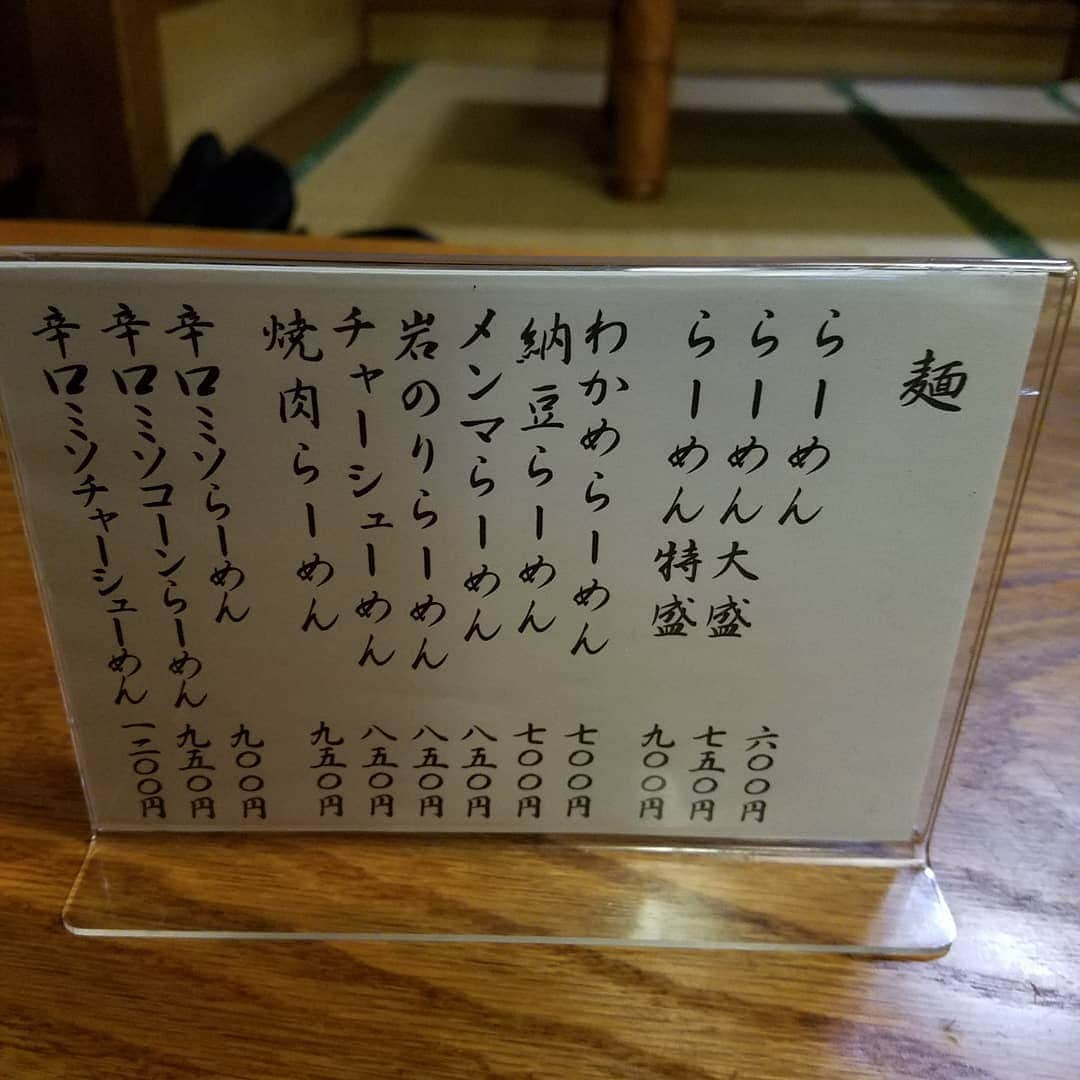 麺
らーめん 六〇〇円
らーめん大盛 七五〇円
らーめん特盛 九〇〇円
わかめらーめん 七〇〇円
納豆らーめん 七〇〇円
メンマらーめん 八五〇円
岩のりらーめん 八五〇円
チャーシューめん 八五〇円
焼肉らーめん 九五〇円
辛口ミソらーめん 九〇〇円
辛口ミソコーンらーめん 九五〇円
辛口ミソチャーシューめん 一二〇〇円